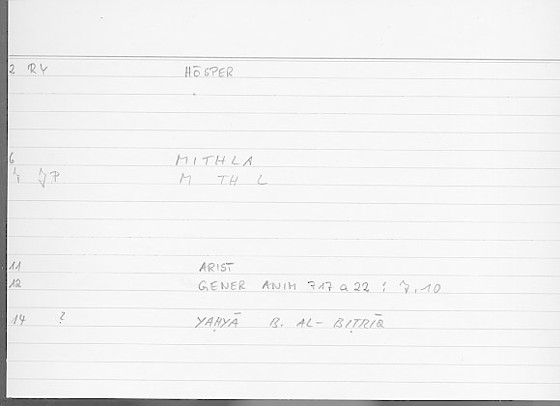 2 RY HŌSPER
6 MITHLA
7 M TH L
11 ARIST
12 GENER ANIM 717 a 22 :
14 ? YAḤYĀ B. AL-BIṬRĪQ